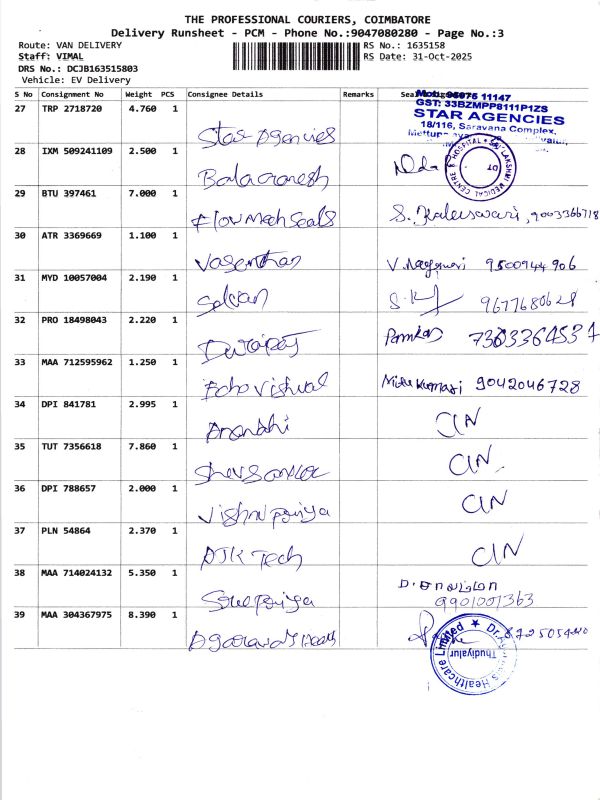 THE PROFESSIONAL COURIERS, COIMBATORE
Delivery Runsheet - PCM - Phone No.:9047080280 - Page No.:3
Route: VAN DELIVERY
RS No.: 1635158
Staff: VIMAL
RS Date: 31-Oct-2025
DRS No.: DCJB163515803
Vehicle: EV Delivery
S No Consignment No Weight PCS Consignee Details Remarks
Mob: 95976 11147
GST: 33BZMPP8111P1ZS
STAR AGENCIES
18/116, Saravana Complex,
27 TRP 2718720 4.760 1 Star Agencies
28 IXM 509241109 2.500 1 Balaganesh
LAKSHMI MEDICAL CENTRE & HOSPITAL
OT
29 BTU 397461 7.000 1 Flow Mech Seals S. Kaleeswari, 9003366718
30 ATR 3369669 1.100 1 Vasanthan V. Nageswari 9500944906
31 MYD 10057004 2.190 1 Selvan 9677680628
32 PRO 18498043 2.220 1 Durairaj 7363364537
33 MAA 712595962 1.250 1 Echo Vishwal 9042046728
34 DPI 841781 2.995 1 Ananthi C/N
35 TUT 7356618 7.860 1 C/N
36 DPI 788657 2.000 1 Vishnu Priya C/N
37 PLN 54864 2.370 1 AJK Tech C/N
38 MAA 714024132 5.350 1 Sree Priya 9901001363
39 MAA 304367975 8.390 1
Healthcare Limited
Thudiyalur